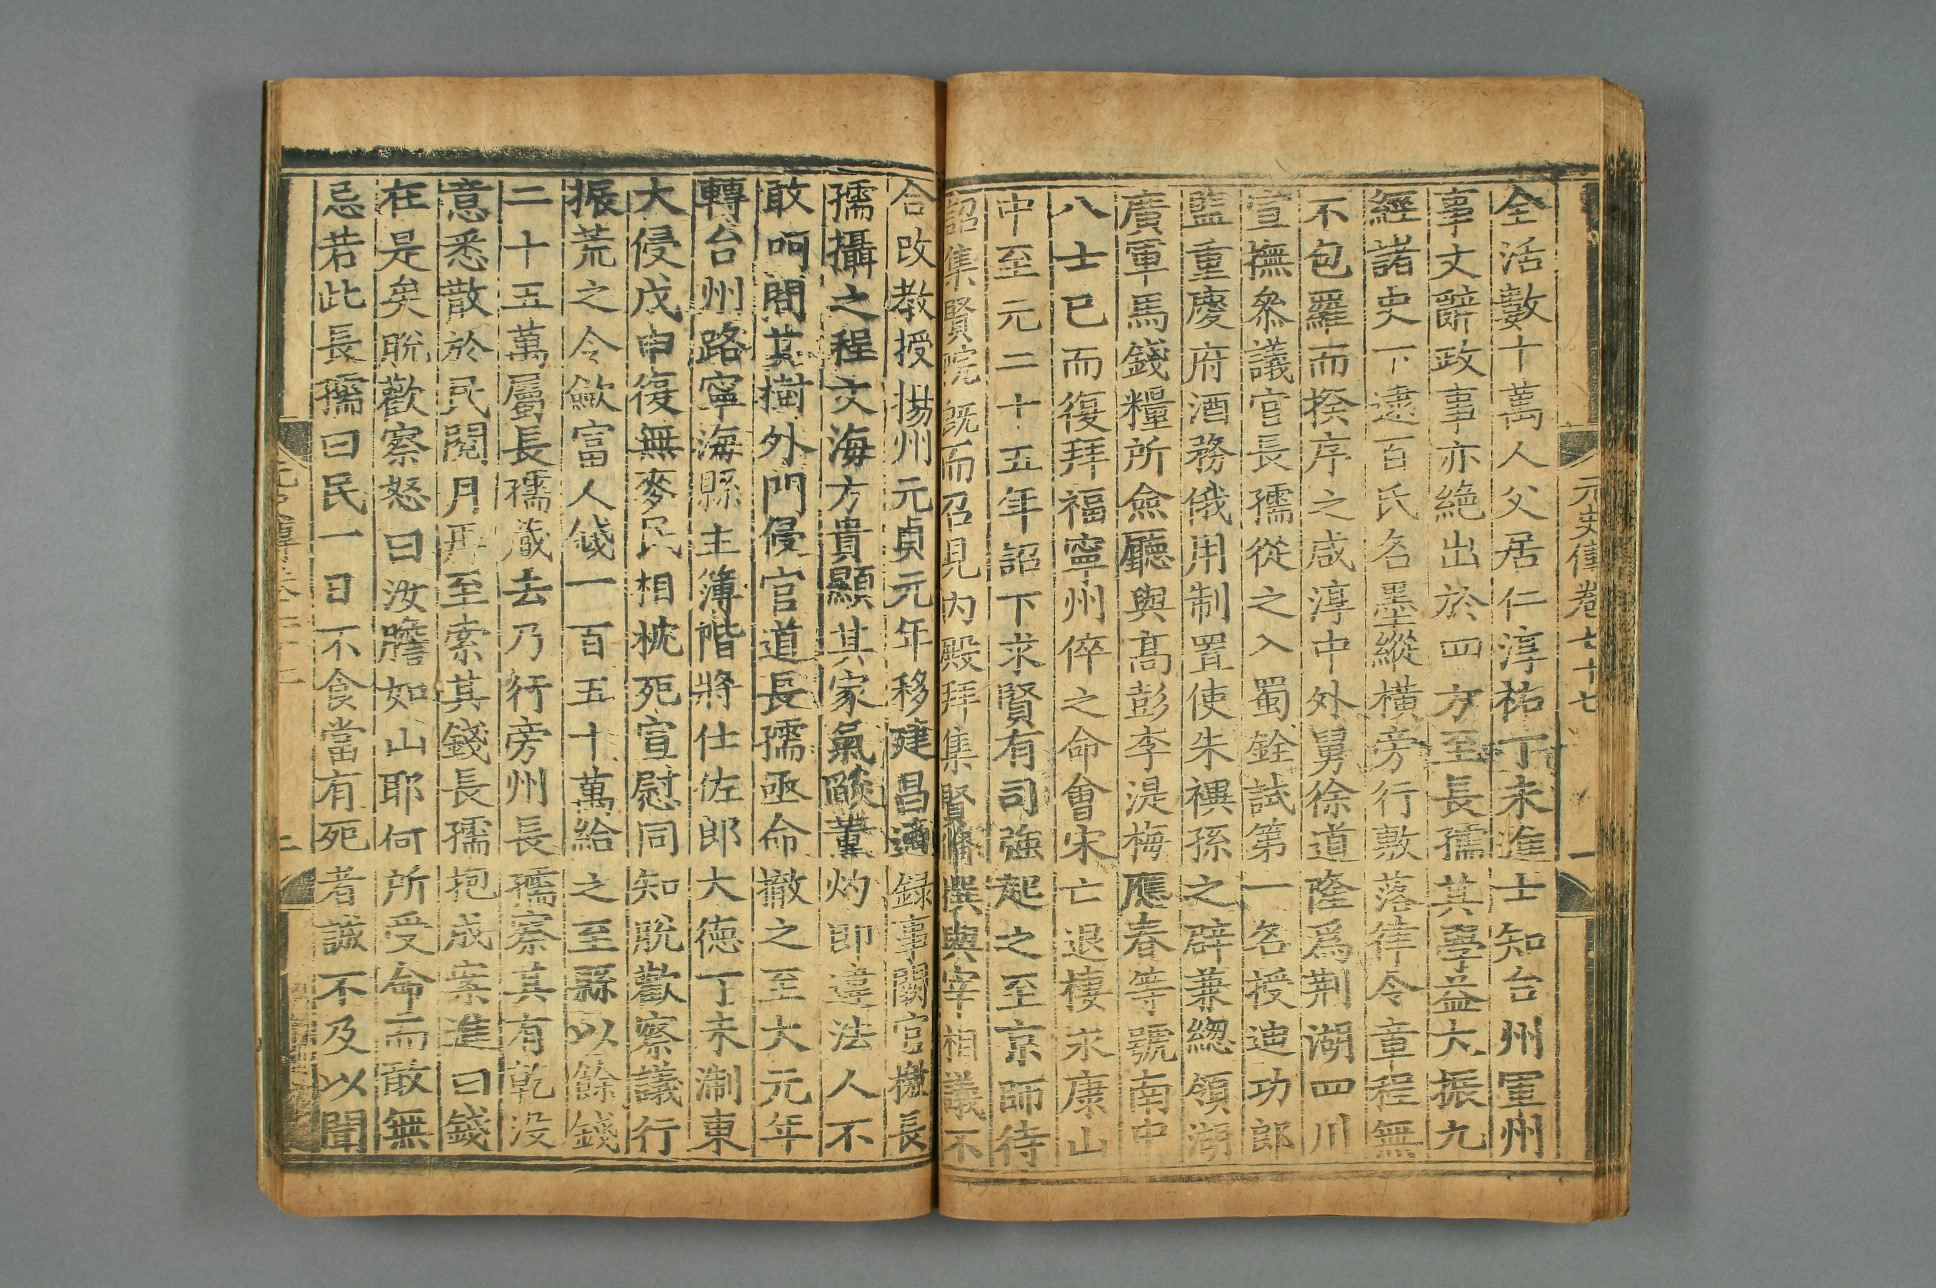 元史傳卷七十七
全活數十萬人父居仁淳祐丁未進士知台州軍州
事文辭政事亦絶出於四方至長孺其學益大振九
經諸史下逮百氏名墨縱橫旁行敷落律令章程無
不包羅而揆序之咸淳中外舅徐道隆爲荆湖四川
宣撫叅議官長孺從之入蜀銓試第一名授迪功郎
監重慶府酒務俄用制置使朱禩孫之辟兼緫領湖
廣軍馬錢糧所僉廳與髙彭李湜梅應春等號南中
八士已而復拜福寧州倅之命會宋亡退棲永康山
中至元二十五年詔下求賢有司強起之至京師待
詔集賢院既而召見内殿拜集賢脩撰與宰相議不
合改教授揚州元貞元年移建昌適録事闕官檄長
孺攝之程文海方貴顯其家氣燄薰灼即違法人不
敢呵問其樹外門侵官道長孺亟命撤之至大元年
轉台州路寧海縣主簿階將仕佐郎大德丁未淛東
大侵戊申復無麥民相枕死宣慰同知脱歡察議行
振荒之令斂富人錢一百五十萬給之至縣以餘錢
二十五萬屬長孺藏去乃行旁州長孺察其有乾没
意悉散於民閲月再至索其錢長孺抱成案進曰錢
在是矣脱歡察怒曰汝膽如山耶何所受命而敢無
忌若此長孺曰民一日不食當有死者誠不及以聞